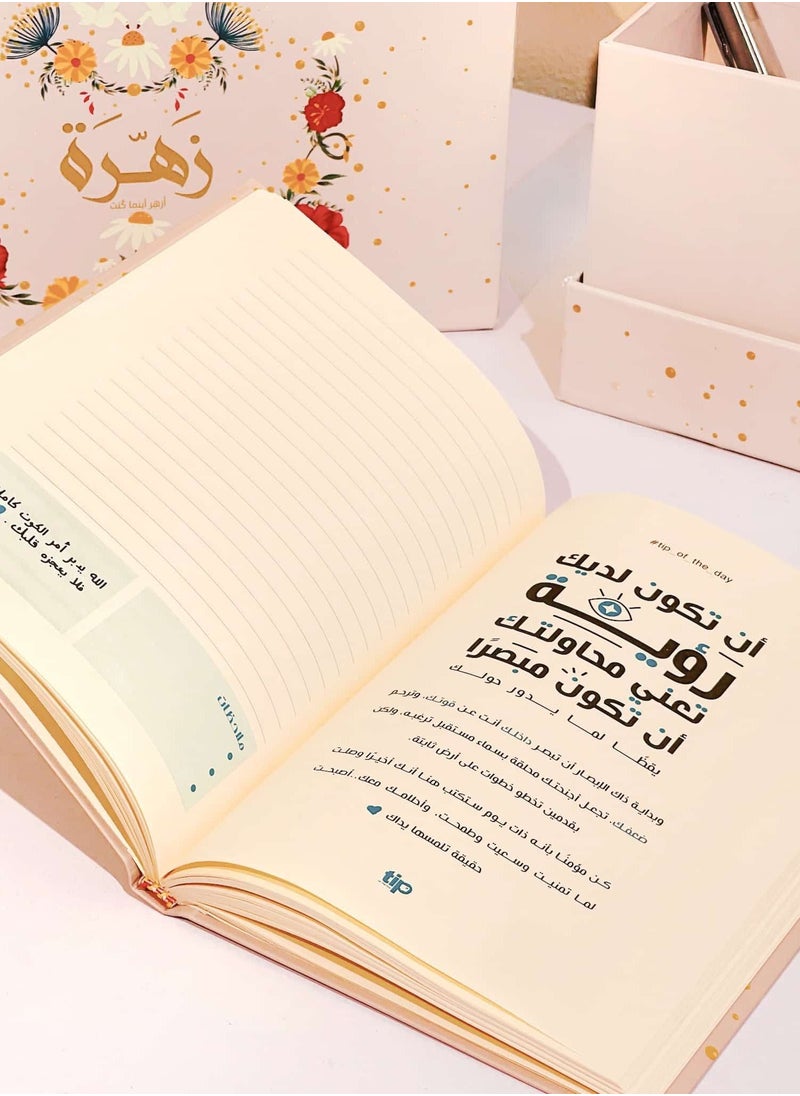 زَهَرَّة
أزهر أينما كُنت
الله يدبر أمر الكون كاملًا
فلا يعجزه قلبك .
ملاحظات
#tip_of_the_day
أن تكون لديك
رَؤيـــة
تعني محاولتك
أن تكون مبصرًا
يقظًا لما يدور حولك
وبداية ذاك الإبصار أن تبصر داخلك أنت عن قوتك. وترحم
ضعفك. تجعل أجنحتك محلقة بسماء مستقبل ترغبه. ولكن
بقدمين تخطو خطوات على أرض ثابتة.
كـن مؤمنًا بأنـه ذات يـوم ستكتب هنـا أنـك أخيـرًا وصلت
لما تمنيت وسعيت وطمحت. وأحلامك معك..أصبحت
حقيقة تلمسها يداك
tip